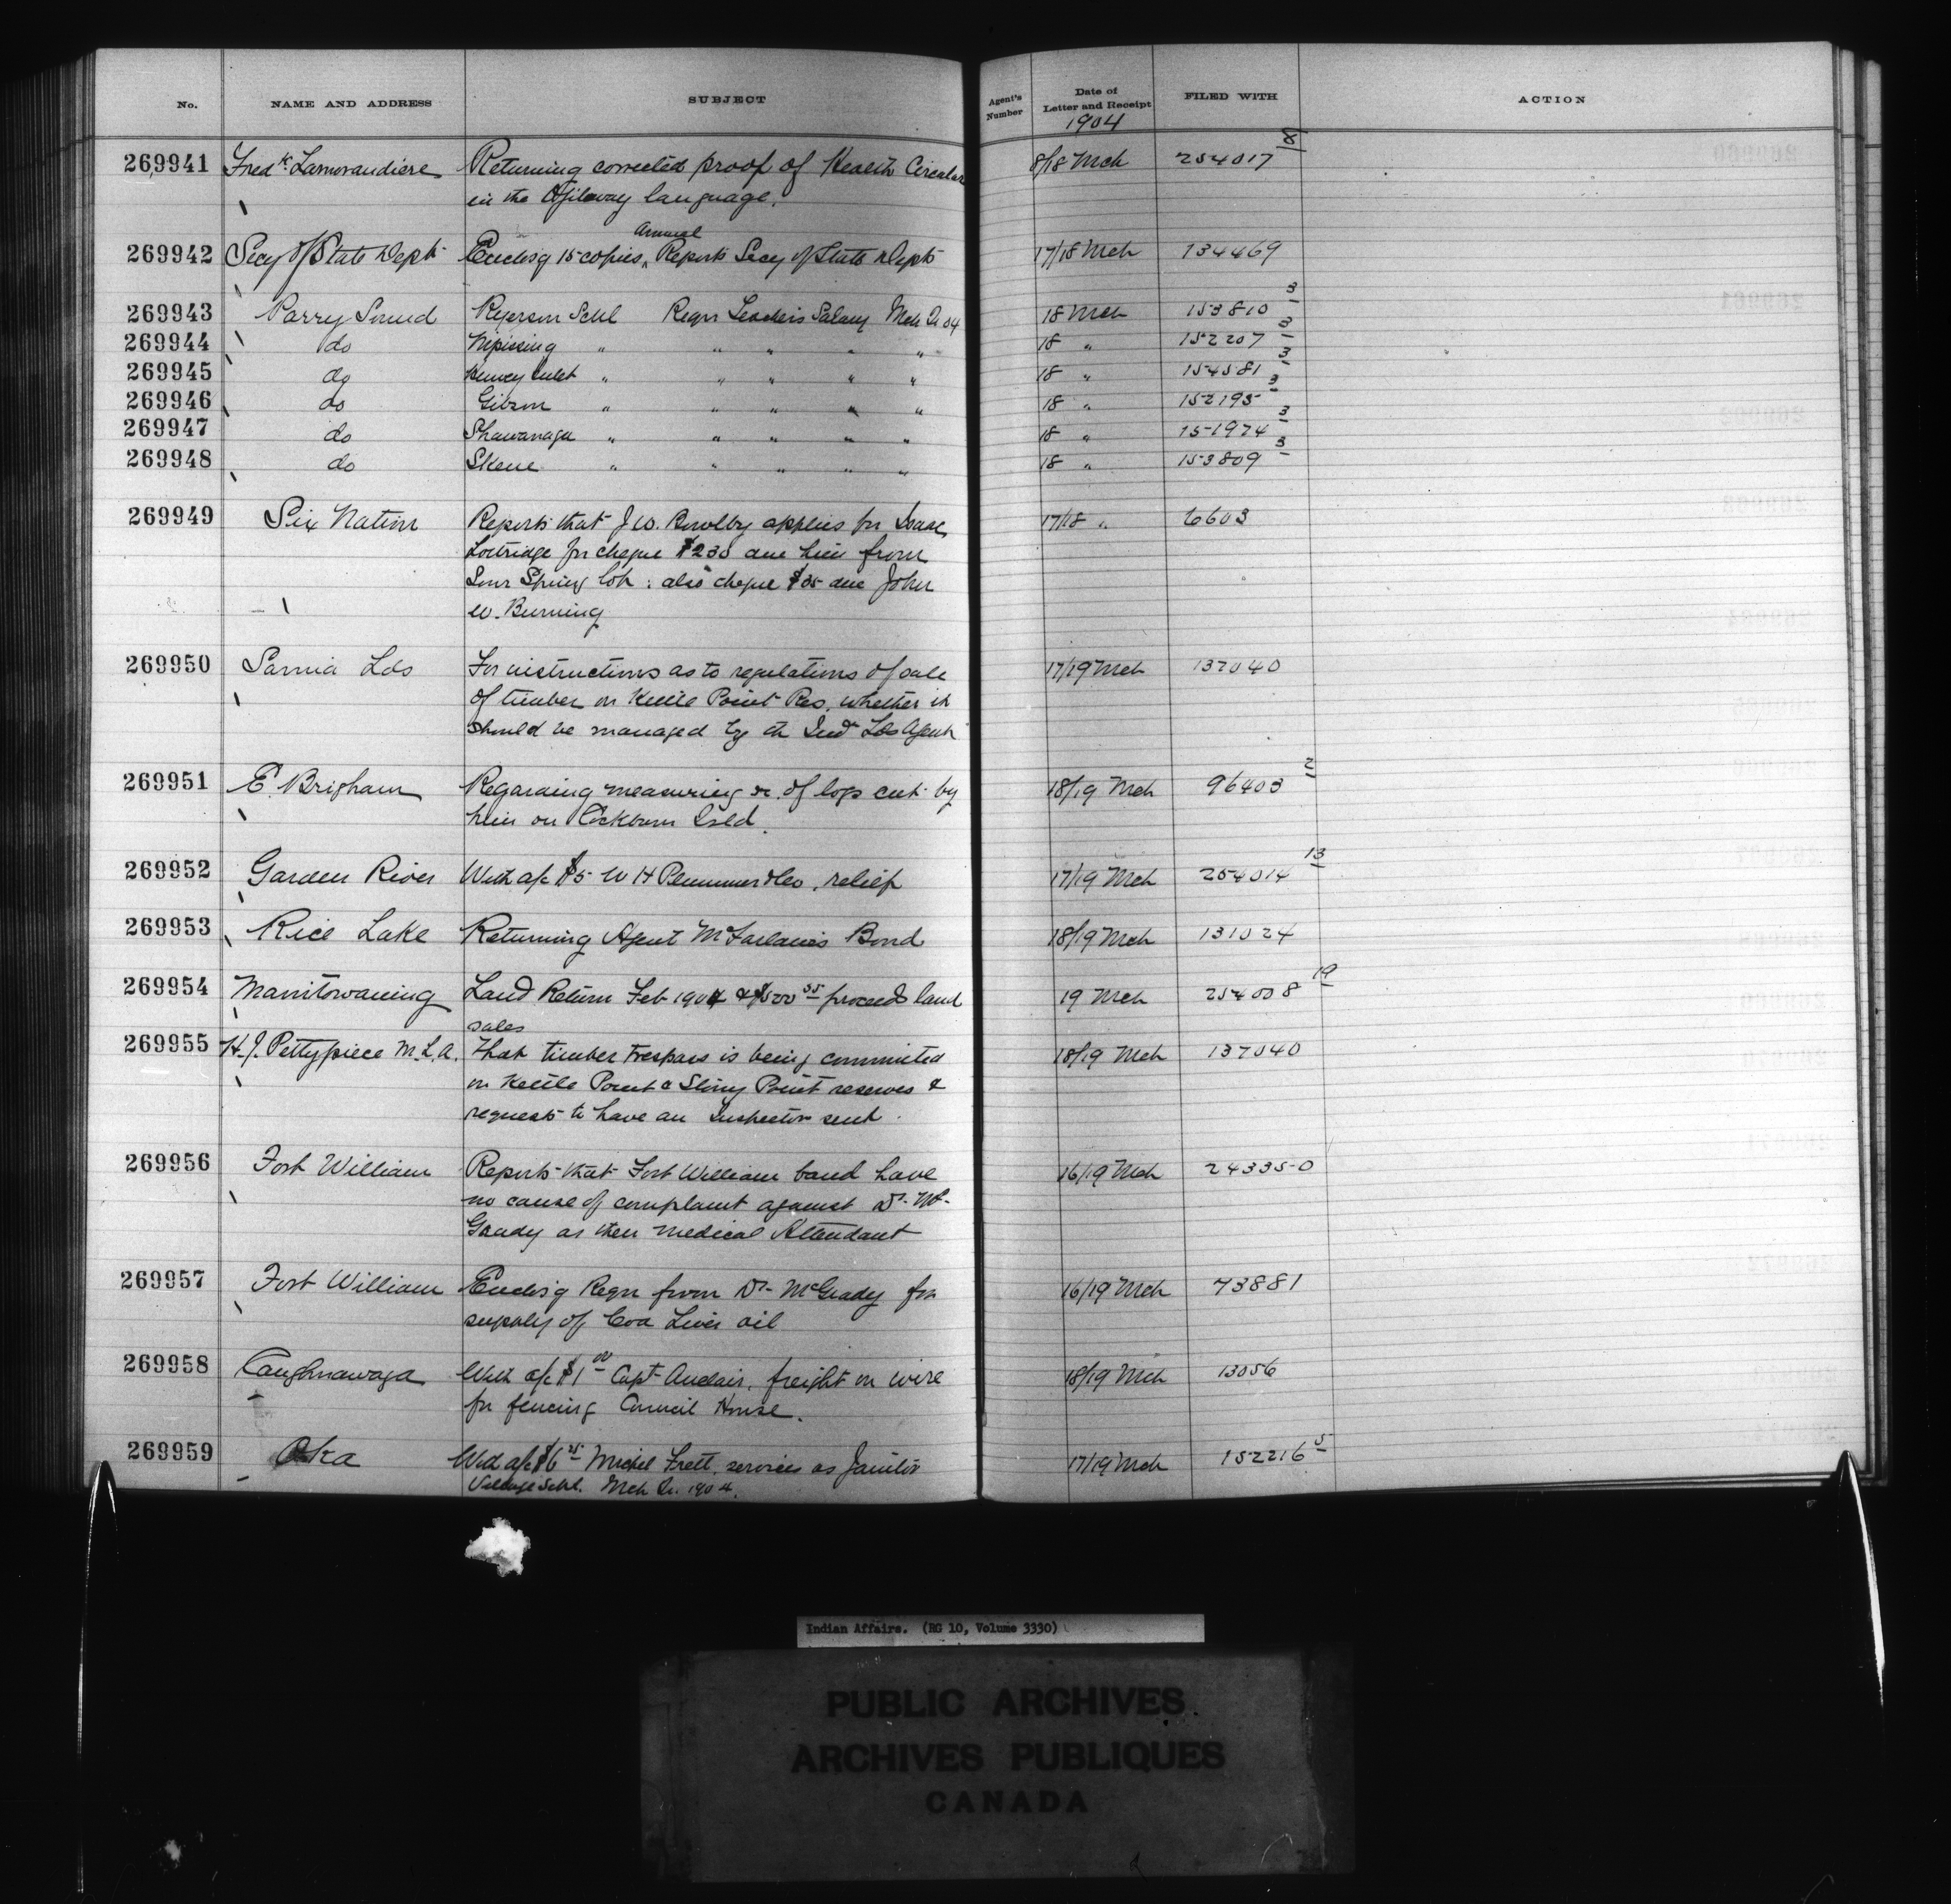 No. NAME AND ADDRESS SUBJECT Agent's Number Date of Letter and Receipt FILED WITH ACTION
1904
269941 Fredk. Lamorandiere Returning corrected proof of Health Circular 8/18 Mch 254017 8
in the Ojibway language.
Annual
269942 Secy of State Dept Enclosg 15 copies Reports Secy of State Dept 17/18 Mch 134469
269943 Parry Sound Ryerson Schl Reqn Teachers Salary Mch Qr 04 18 Mch 153810 3
269944 do Nipissing " " " " " 18 " 152207 3
269945 do Henvey Inlet " " " " " 18 " 154581 3
269946 do Gibson " " " " " 18 " 152195 3
269947 do Shawanaga " " " " " 18 " 151974 3
269948 do Skene " " " " " 18 " 153809 3
269949 Six Nation Reports that J W. Bowlby applies for Isaac 17/18 " 6603
Lottridge for cheque $230 due him from
Sour Spring lot : also cheque $35 due John
W. Burning
269950 Sarnia Lds For instructions as to regulations of sale 17/19 Mch 137040
of timber on Kettle Point Res. whether it
should be managed by the Ind Lds Agent
269951 E. Brigham Regarding measuring &c. of logs cut by 18/19 Mch 96403 2
him on Cockburn Isld.
269952 Garden River With a/c $5 W H Plummer & Co, relief 17/19 Mch 254014 13
269953 Rice Lake Returning Agent McFarlane's Bond 18/19 Mch 131024
269954 Manitowaning Land Return Feb 1904 & $500 35 proceeds land 19 Mch 254008 19
sales
269955 H. J. Pettypiece M.L.A. That timber trespass is being committed 18/19 Mch 137040
on Kettle Point & Stony Point reserves &
requests to have an Inspector sent.
269956 Fort William Reports that Fort William band have 16/19 Mch 243350
no cause of complaint against Dr. Mc-
Grady as their medical Attendant
269957 Fort William Enclosg Reqn from Dr. McGrady for 16/19 Mch 73881
supply of Cod Liver oil
269958 Caughnawaga With a/c $1 00 Capt Auclair, freight on wire 18/19 Mch 13056
for fencing Council House.
269959 Oka With a/c $6 25 Michel Frett. services as Janitor 17/19 Mch 152216 5
Village Schl. Mch Qr. 1904.
Indian Affairs. (RG 10, Volume 3330)
PUBLIC ARCHIVES
ARCHIVES PUBLIQUES
CANADA